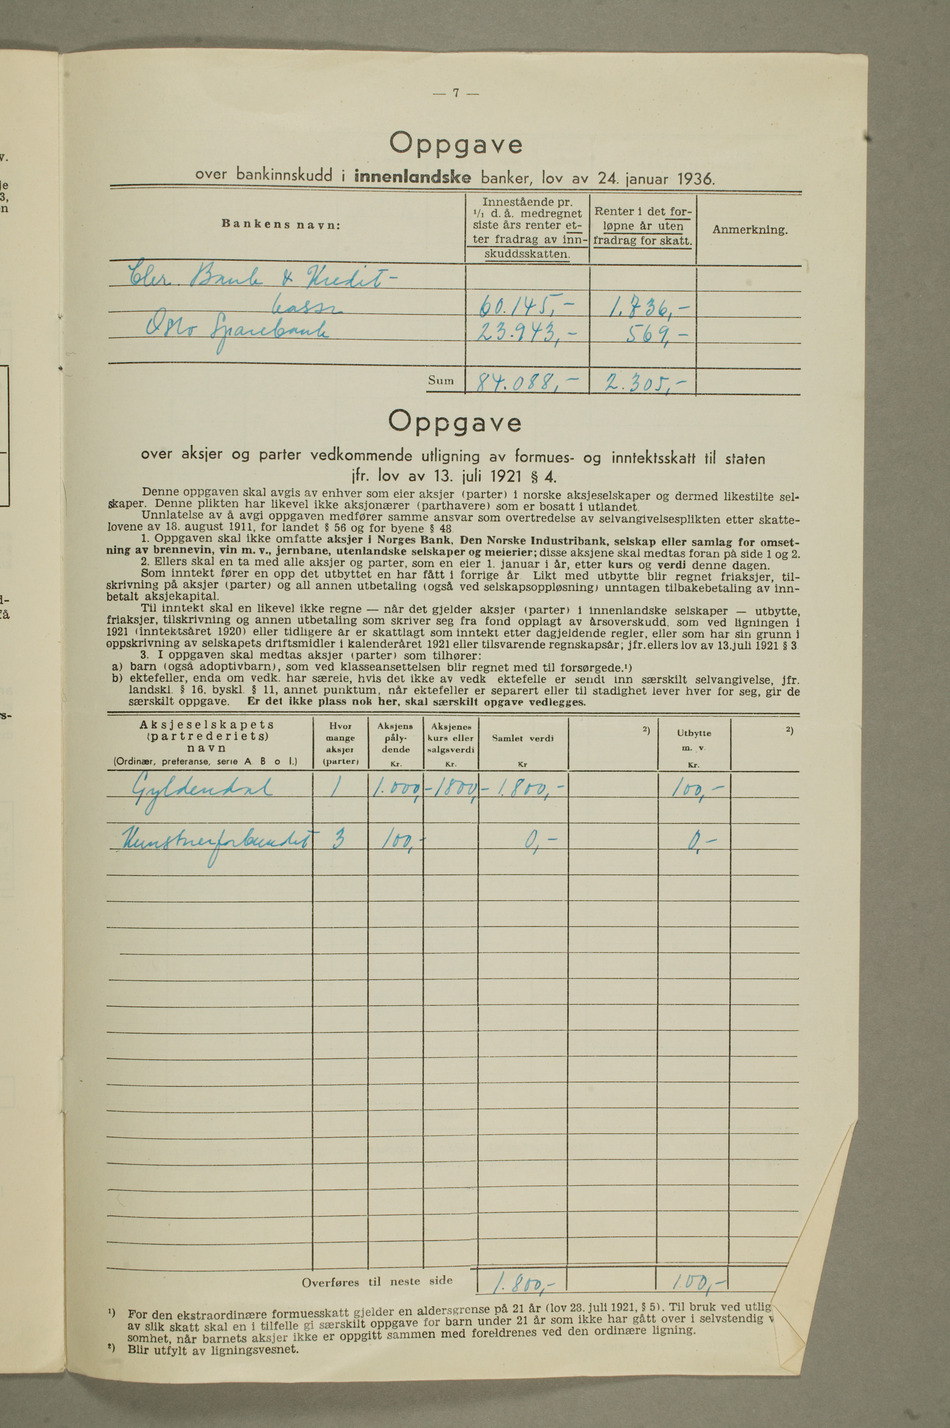 — 7 —
Oppgave
over bankinnskudd i innenlandske banker, lov av 24. januar 1936.
Bankens navn:
Innestående pr.
1/1 d. å. medregnet
siste års renter et-
ter fradrag av inn-
skuddsskatten.
Renter i det for-
løpne år uten
fradrag for skatt.
Anmerkning.
Chr. Bank & Kredit-
kasse 60.145,- 1.736,-
Oslo Sparebank 23.943,- 569,-
Sum 84.088,- 2.305,-
Oppgave
over aksjer og parter vedkommende utligning av formues- og inntektsskatt til staten
jfr. lov av 13. juli 1921 § 4.
Denne oppgaven skal avgis av enhver som eier aksjer (parter) i norske aksjeselskaper og dermed likestilte sel-
skaper. Denne plikten har likevel ikke aksjonærer (parthavere) som er bosatt i utlandet
Unnlatelse av å avgi oppgaven medfører samme ansvar som overtredelse av selvangivelsesplikten etter skatte-
lovene av 18. august 1911, for landet § 56 og for byene § 48
1. Oppgaven skal ikke omfatte aksjer i Norges Bank, Den Norske Industribank, selskap eller samlag for omset-
ning av brennevin, vin m. v., jernbane, utenlandske selskaper og meierier; disse aksjene skal medtas foran på side 1 og 2.
2. Ellers skal en ta med alle aksjer og parter, som en eier 1. januar i år, etter kurs og verdi denne dagen.
Som inntekt fører en opp det utbyttet en har fått i forrige år Likt med utbytte blir regnet friaksjer, til-
skrivning på aksjer (parter) og all annen utbetaling (også ved selskapsoppløsning) unntagen tilbakebetaling av inn-
betalt aksjekapital.
Til inntekt skal en likevel ikke regne — når det gjelder aksjer (parter) i innenlandske selskaper — utbytte,
friaksjer, tilskrivning og annen utbetaling som skriver seg fra fond opplagt av årsoverskudd, som ved ligningen i
1921 (inntektsåret 1920) eller tidligere år er skattlagt som inntekt etter dagjeldende regler, eller som har sin grunn i
oppskrivning av selskapets driftsmidler i kalenderåret 1921 eller tilsvarende regnskapsår; jfr. ellers lov av 13. juli 1921 § 3
3. I oppgaven skal medtas aksjer (parter) som tilhører:
a) barn (også adoptivbarn), som ved klasseansettelsen blir regnet med til forsørgede.¹)
b) ektefeller, enda om vedk. har særeie, hvis det ikke av vedk ektefelle er sendt inn særskilt selvangivelse, jfr.
landskl. § 16, byskl. § 11, annet punktum, når ektefeller er separert eller til stadighet lever hver for seg, gir de
særskilt oppgave. Er det ikke plass nok her, skal særskilt opgave vedlegges.
Aksjeselskapets
(partrederiets)
navn
(Ordinær, preferanse, serie A B o l.)
Hvor
mange
aksjer
(parter)
Aksjens
påly-
dende
Kr.
Aksjenes
kurs eller
salgsverdi
Kr.
Samlet verdi
Kr
²)
Utbytte
m. v.
Kr.
²)
Gyldendal 1 1.000,- 1800,- 1.800,- 100,-
Kunstnerforbundet 3 100,- 0,- 0,-
Overføres til neste side 1.800,- 100,-
¹) For den ekstraordinære formuesskatt gjelder en aldersgrense på 21 år (lov 28. juli 1921, § 5). Til bruk ved utlig
av slik skatt skal en i tilfelle gi særskilt oppgave for barn under 21 år som ikke har gått over i selvstendig v
somhet, når barnets aksjer ikke er oppgitt sammen med foreldrenes ved den ordinære ligning.
²) Blir utfylt av ligningsvesnet.